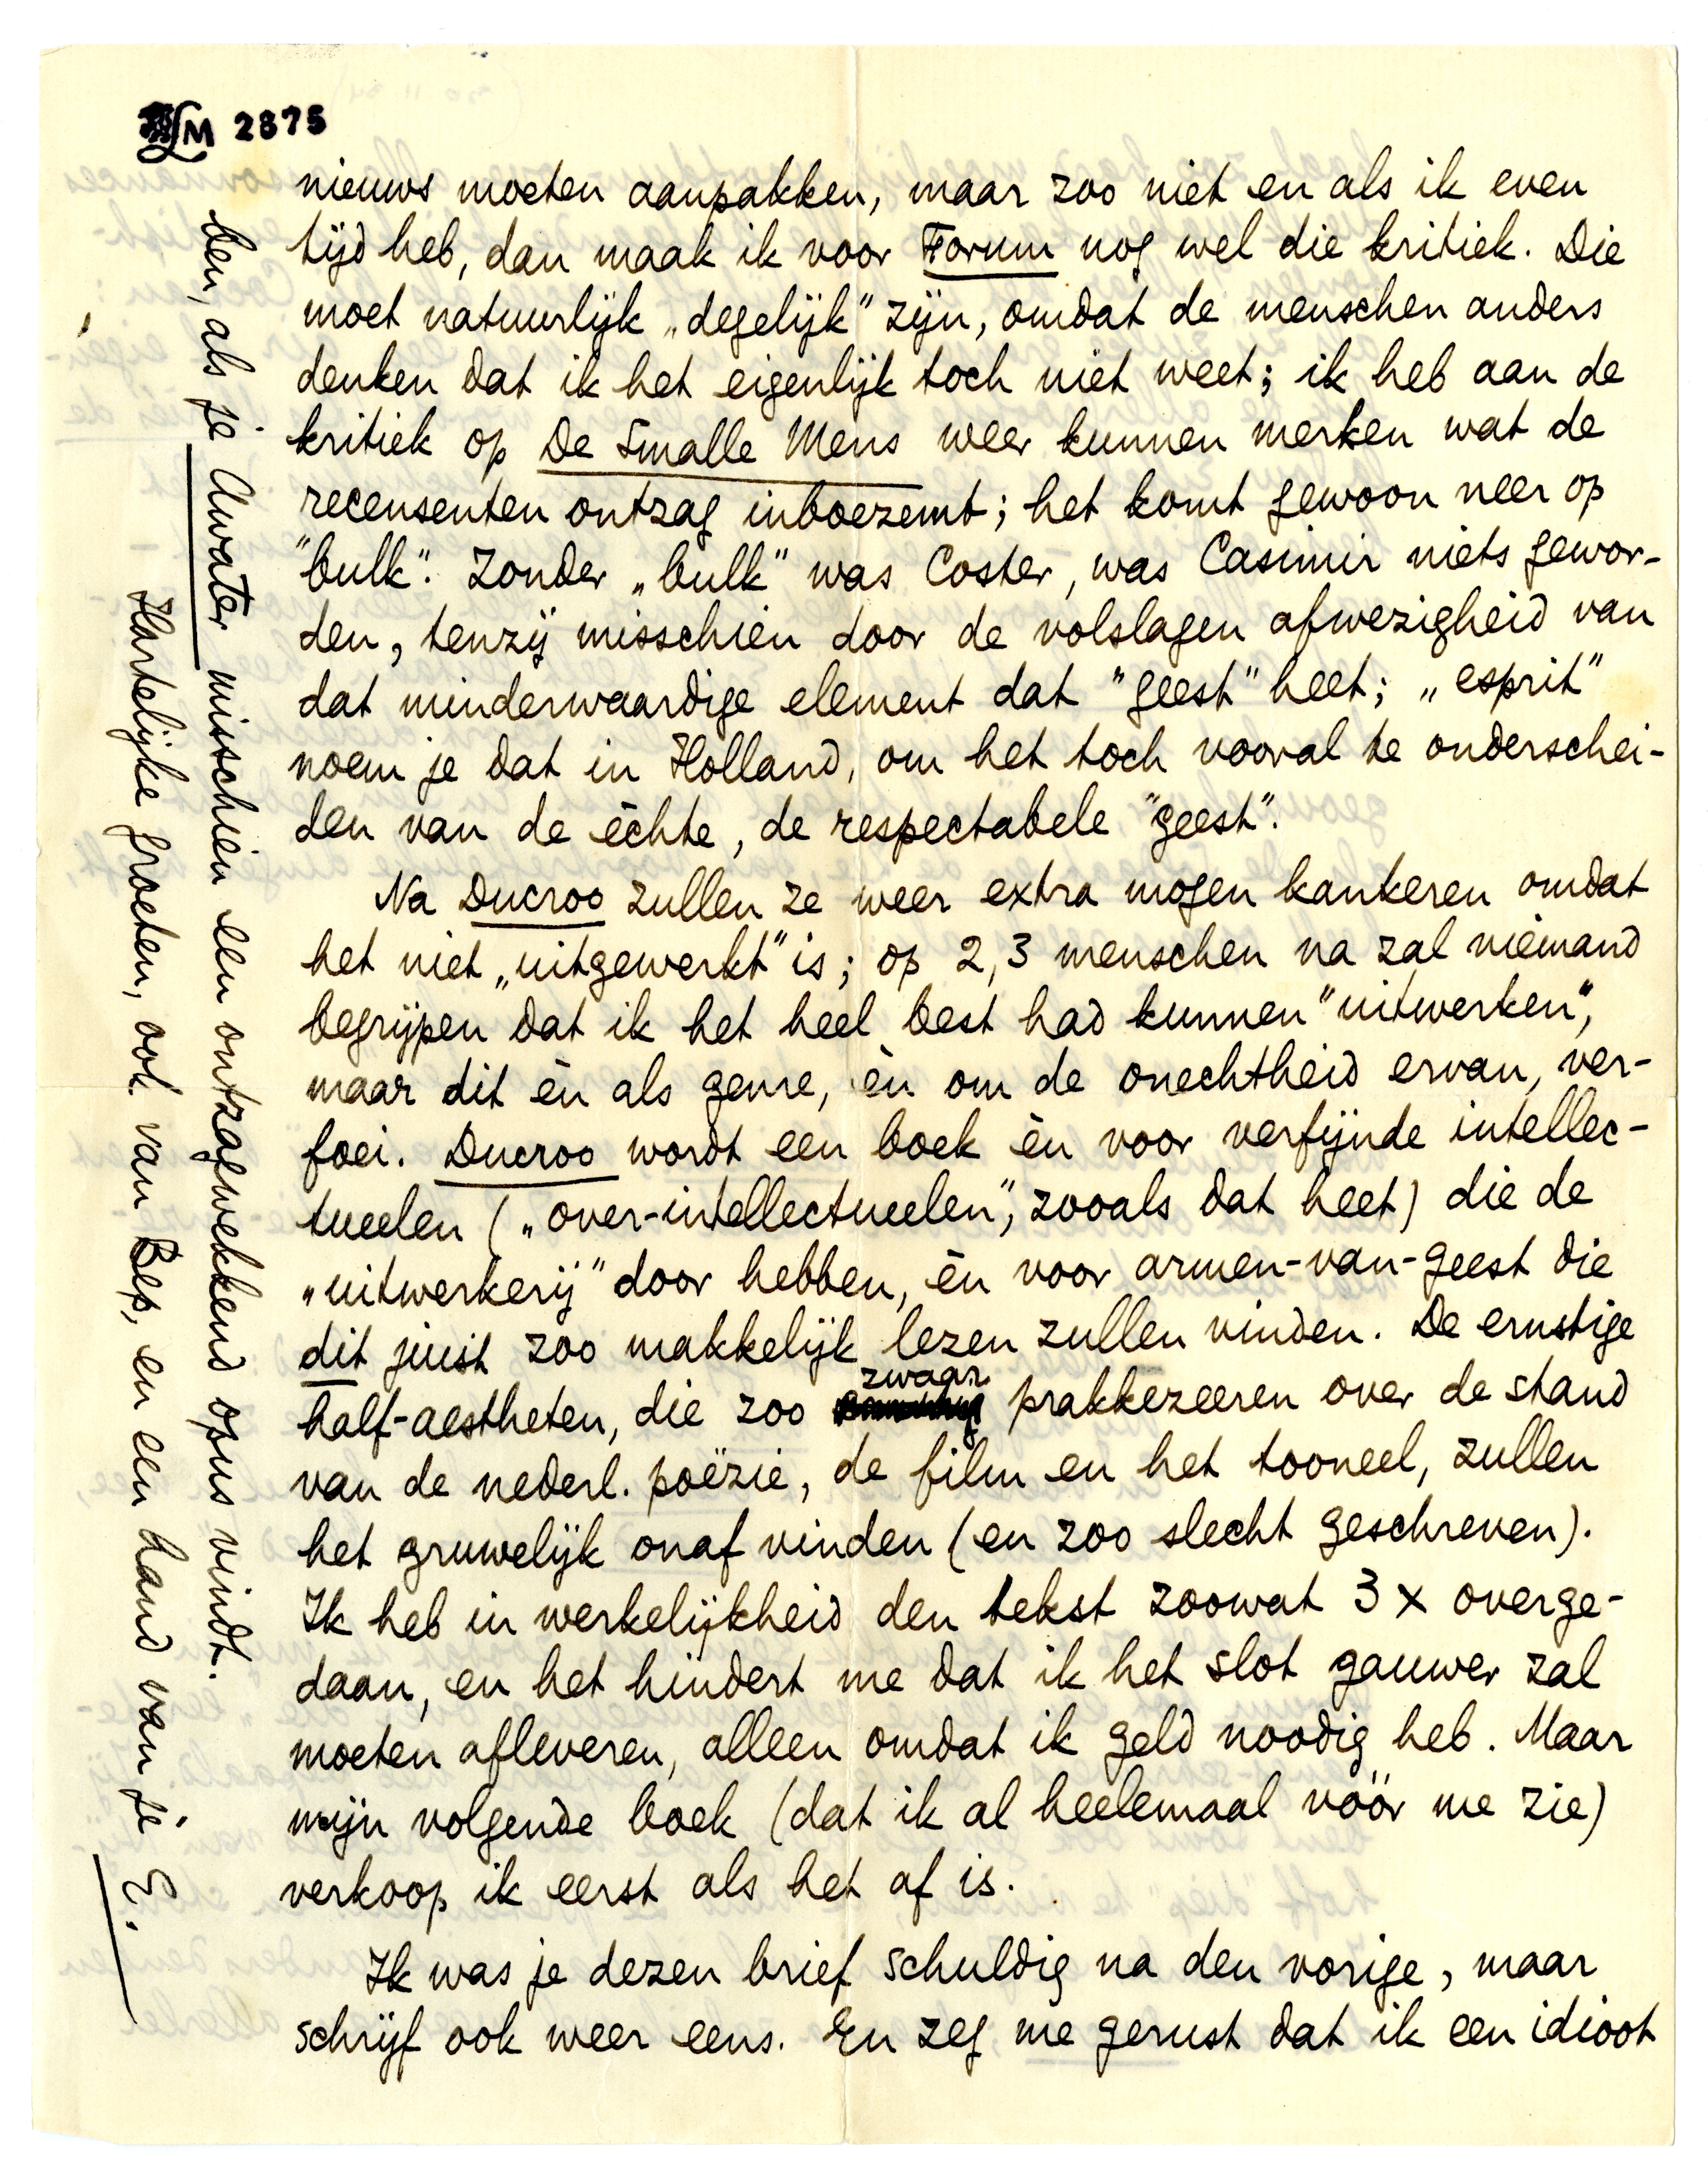 LM 2875
nieuws moeten aanpakken, maar zoo niet en als ik even
tijd heb, dan maak ik voor Forum nog wel die kritiek. Die
moet natuurlijk „degelijk" zijn, omdat de menschen anders
denken dat ik het eigenlijk toch niet weet; ik heb aan de
kritiek op De Smalle Mens weer kunnen merken wat de
recensenten ontzag inboezemt; het komt gewoon neer op
"bulk". Zonder „bulk" was Coster, was Casimir niets gewor-
den, tenzij misschien door de volslagen afwezigheid van
dat minderwaardige element dat "geest" heet; „esprit"
noem je dat in Holland, om het toch vooral te onderschei-
den van de èchte, de respectabele "geest".
Na Ducroo zullen ze weer extra mogen kankeren omdat
het niet „uitgewerkt" is; op 2, 3 menschen na zal niemand
begrijpen dat ik het heel best had kunnen "uitwerken",
maar dit èn als genre, èn om de onechtheid ervan, ver-
foei. Ducroo wordt een boek èn voor verfijnde intellec-
tueelen („over-intellectueelen", zooals dat heet) die de
„uitwerkerij" door hebben, èn voor armen-van-geest die
dit juist zoo makkelijk lezen zullen vinden. De ernstige
half-aestheten, die zoo zwaar prakkezeeren over de stand
van de nederl. poëzie, de film en het tooneel, zullen
het gruwelijk onaf vinden (en zoo slecht geschreven).
Ik heb in werkelijkheid den tekst zoowat 3 x overge-
daan, en het hindert me dat ik het slot gauwer zal
moeten afleveren, alleen omdat ik geld noodig heb. Maar
mijn volgende boek (dat ik al heelemaal vóór me zie)
verkoop ik eerst als het af is.
Ik was je dezen brief schuldig na den vorige, maar
schrijf ook weer eens. En zeg me gerust dat ik een idioot
ben, als je Awater misschien een ontzagwekkend opus vindt.
Hartelijke groeten, ook van Bep, en een hand van je E.